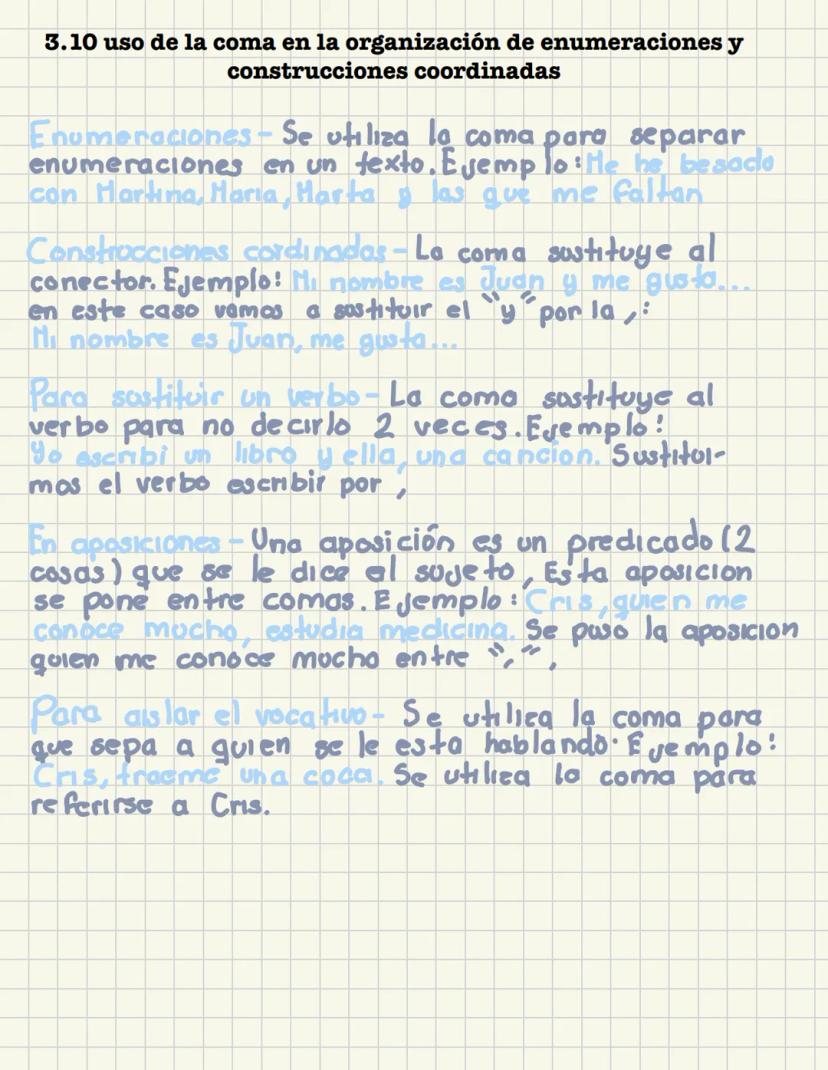 3.10 uso de la coma en la organización de enumeraciones y
construcciones coordinadas
Enumeraciones - Se utiliza la coma para separar
enumeraciones en un texto. Ejemplo: Me he besado
con Martina, Maria, Marta y las que me faltan
Construcciones cordinadas - La coma sustituye al
conector. Ejemplo: Mi nombre es Juan y me gusta...
en este caso vamos a sustituir el "y" por la ,:
Mi nombre es Juan, me gusta...
Para sustituir un verbo - La coma sustituye al
verbo para no decirlo 2 veces. Ejemplo:
Yo escribi un libro y ella, una cancion. Sustitui-
mos el verbo escribir por ,
En aposiciones - Una aposición es un predicado (2
cosas) que se le dice al sujeto, Esta aposicion
se pone entre comas. Ejemplo: Cris, quien me
conoce mucho, estudia medicina. Se puso la aposicion
quien me conoce mucho entre ",",
Para aislar el vocativo - Se utilica la coma para
que sepa a quien se le esta hablando. Ejemplo:
Cris, traeme una coca. Se utiliza la coma para
referirse a Cris.